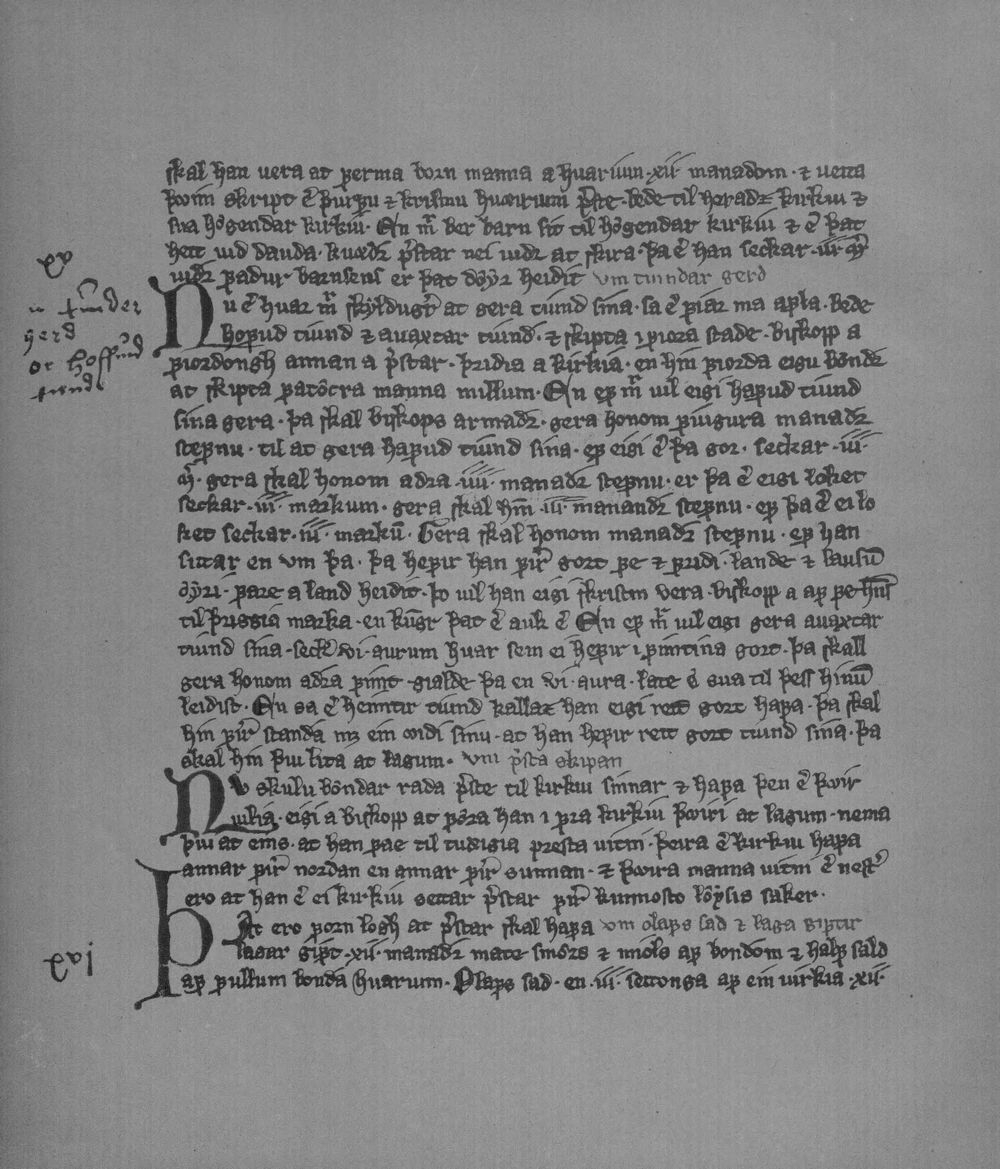 skal han uera at ꝼerma born manna a huarium ·xii· manadom · ⁊ ueita
þæim skript ē þurꝼu ⁊ kristnu huærium pͤste · bede til heradz kirkiu ⁊
sua hôgendar kirkiu · En mͣ ber barn sit til hôgendar kirkiu ⁊ ē þat
hett uid dauda · kuædr pͤstar nei uidr at skira · þa ē han seckar ·iii· mͬ
uidr ꝼadur barnsens er þat dôyr heidit vm tiundar gerd
Nu ē huar mͣ skyldugͬ at gera tiund sina · sa ē ꝼiar ma aꝼla · bede
hoꝼud tiund ⁊ auaxtar tiund · ⁊ skipta i ꝼiora stade · biskopp a
ꝼiordongh annan a pͤstar · þridia a kirkia · en hin ꝼiorda eigu bôndr
at skipta ꝼatôcra manna millum · En eꝼ mͣ uil eigi haꝼud tiund
sina gera · þa skal biskops armadr · gera honom ꝼiuigura manadr
steꝼnu · til at gera haꝼud tiund sina · eꝼ eigi ē þa gor · seckar ·iii·
mͬ · gera skal honom adra ·iiii· manadr steꝼnu · er þa ē eigi loket
seckar ·iii· markum · gera skal hm̄ ·iiii· manandr steꝼnu · eꝼ þa ē ei lo
ket seckar ·iii· markū · Gera skal honom manadr steꝼnu · eꝼ han
sitar en vm þa · þa heꝼir han ꝼirͥ gort ꝼe ⁊ ꝼridi · lande ⁊ lausū
ôyri · ꝼare a land heidit · þo uil han eigi skristin vera · biskopp a aꝼ ꝼe hn̄s
til þriggia marka · en kūgͬ þat ē auk ē En eꝼ mͣ uil eigi gera auaxtar
tiund sina · seckͬ vi · aurum huar sem ei heꝼir i ꝼimtina gort · þa skall
gera honom adra ꝼimt · gialde þa en vi · aura · late ē sua til þess hinū
leidist · En sa ē hemtir tiund kallar han eigi rett gort haꝼa · þa skal
hin ꝼirͥ standa mz ein æidi sinu · at han heꝼir rett gort tiund sina · þa
skal hin þui lita at lagum · vm pͤsta skipan
Nv skulu bôndar rada pͤste til kirkiu sinnar ⁊ haꝼa þen ē þæir
uilia · eigi a biskopp at ꝼôra han i ꝼra kirkiu þæiri at lagum · nema
þui at eins · at han ꝼae til tudigia presta uitni · þeira ē kirkiu haꝼa
annar ꝼirͥ nordan en annar ꝼirͥ sunnan · ⁊ þæira manna uitni ē nestͬ
ero at han ē ei kirkiu settar pͤstar ꝼirͥ kunnosto lôysis saker ·
Þat ero ꝼorn logh at pͤstar skal haꝼa vm olaꝼs sad ⁊ laga giꝼtir
lagar giꝼt ·xii· manadr mate smôrs ⁊ miols aꝼ bondom ⁊ halꝼ sald
aꝼ ꝼullum bonda huarum · Olaꝼs sad · en ·iii· settonga aꝼ ein uirkia ·xii·
xv
xvi